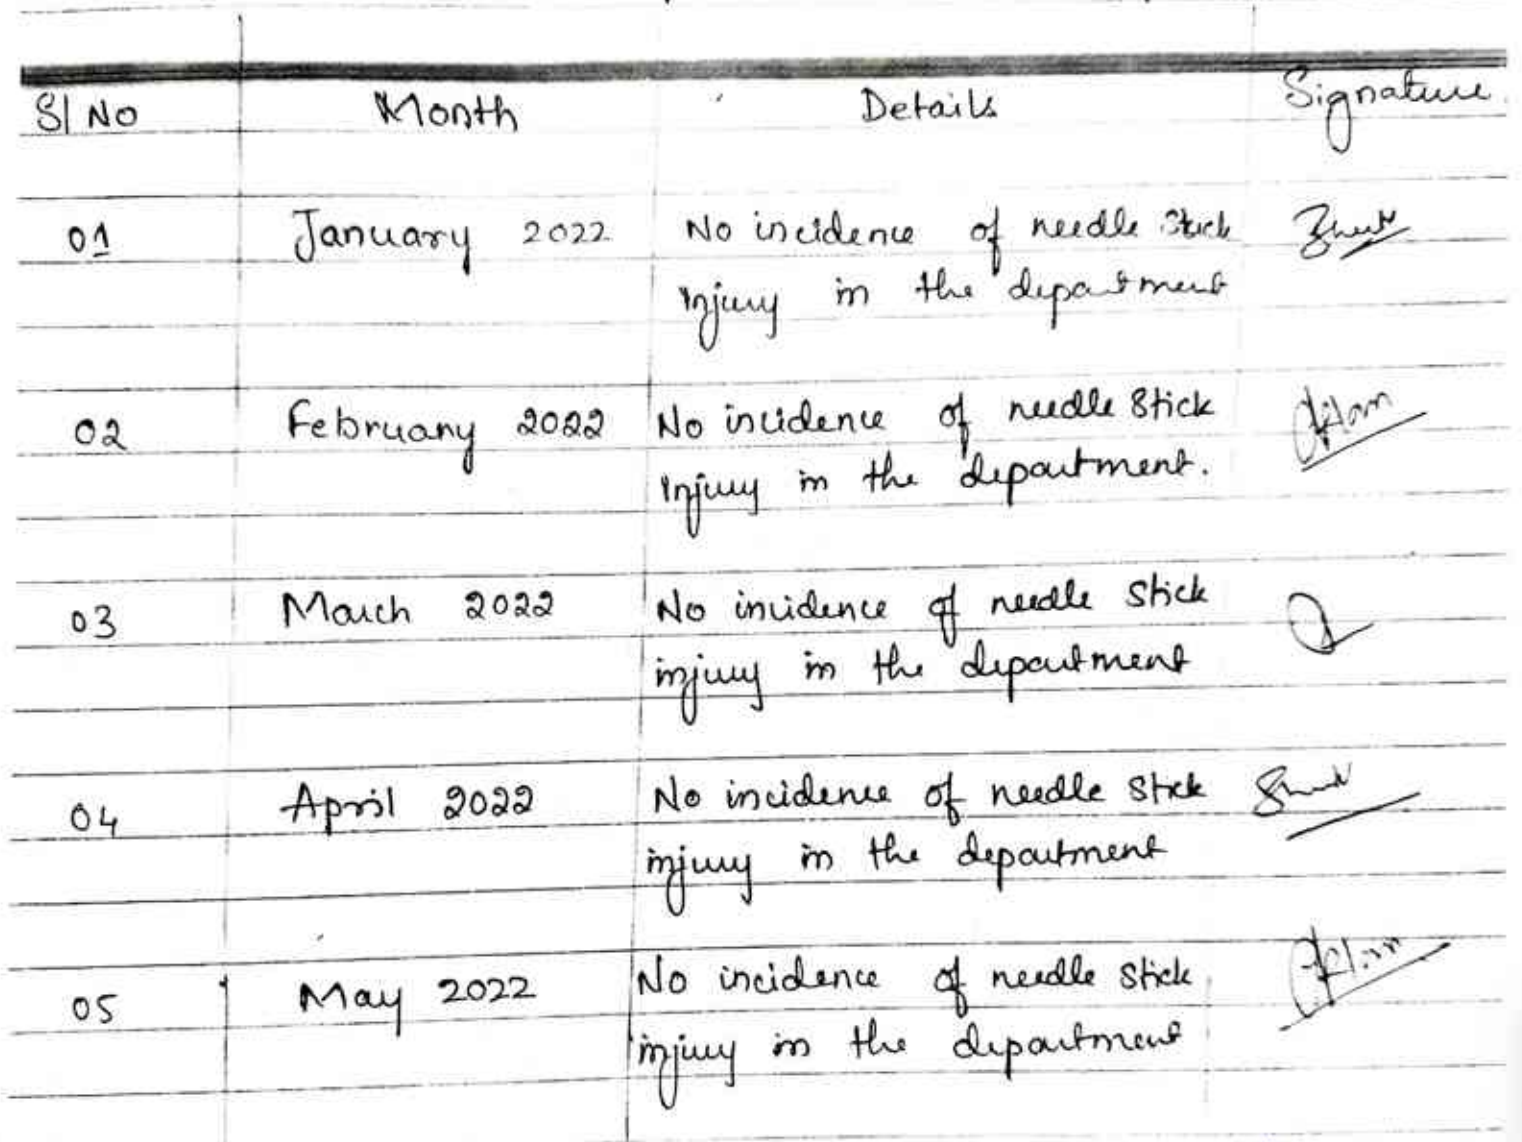 Sl No Month Details Signature
01 January 2022 No incidence of needle stick
injury in the department
02 February 2022 No incidence of needle stick
injury in the department.
03 March 2022 No incidence of needle stick
injury in the department
04 April 2022 No incidence of needle stick
injury in the department
05 May 2022 No incidence of needle stick
injury in the department